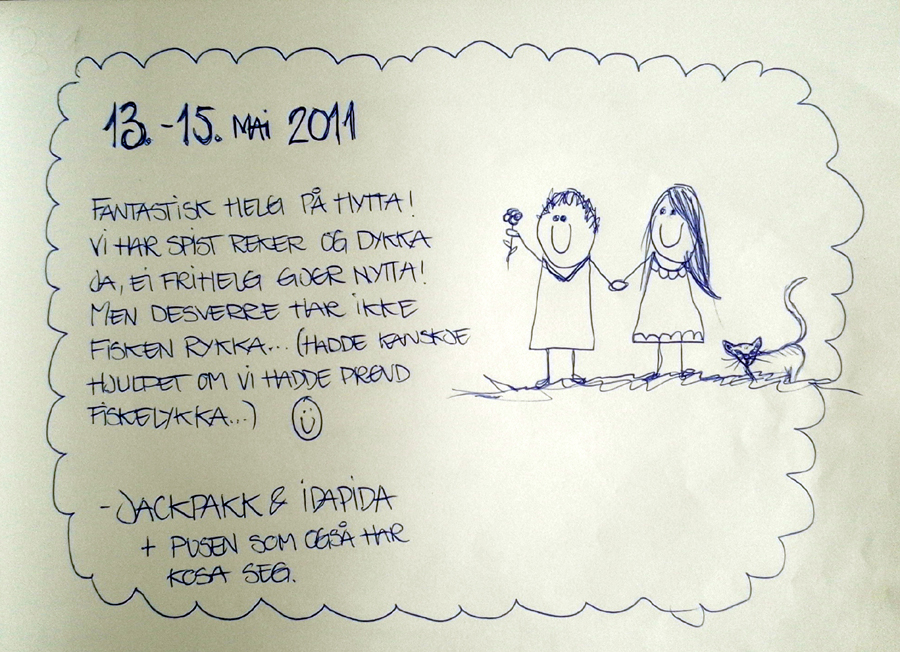 13.-15. MAI 2011
FANTASTISK HELG PÅ HYTTA!
VI HAR SPIST REKER OG DYKKA
JA, EI FRIHELG GJØR NYTTA!
MEN DESVERRE HAR IKKE
FISKEN RYKKA... (HADDE KANSKJE
HJULPET OM VI HADDE PRØVD
FISKELYKKA...)
- JACKPAKK & IDAPIDA
+ PUSEN SOM OGSÅ HAR
KOSA SEG.